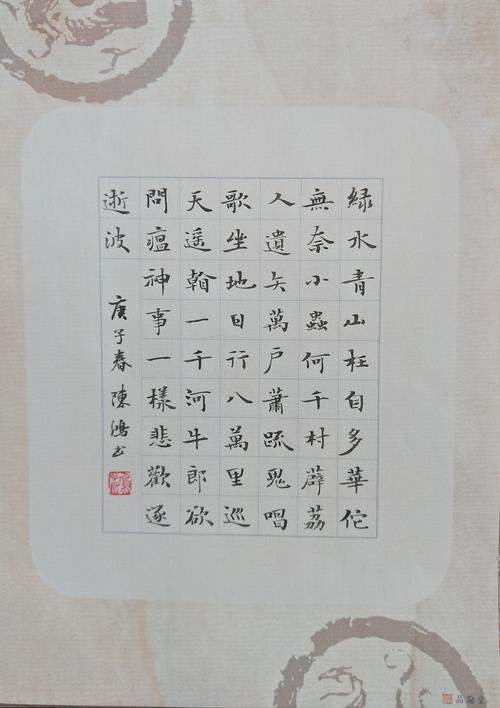 緑水青山枉自多華佗
無奈小蟲何千村薜荔
人遺矢萬戶蕭疏鬼唱
歌坐地日行八萬里巡
天遥一千河牛郎欲
問瘟神事一樣悲歡逐
逝波
庚子春陳鴻书
品翰堂